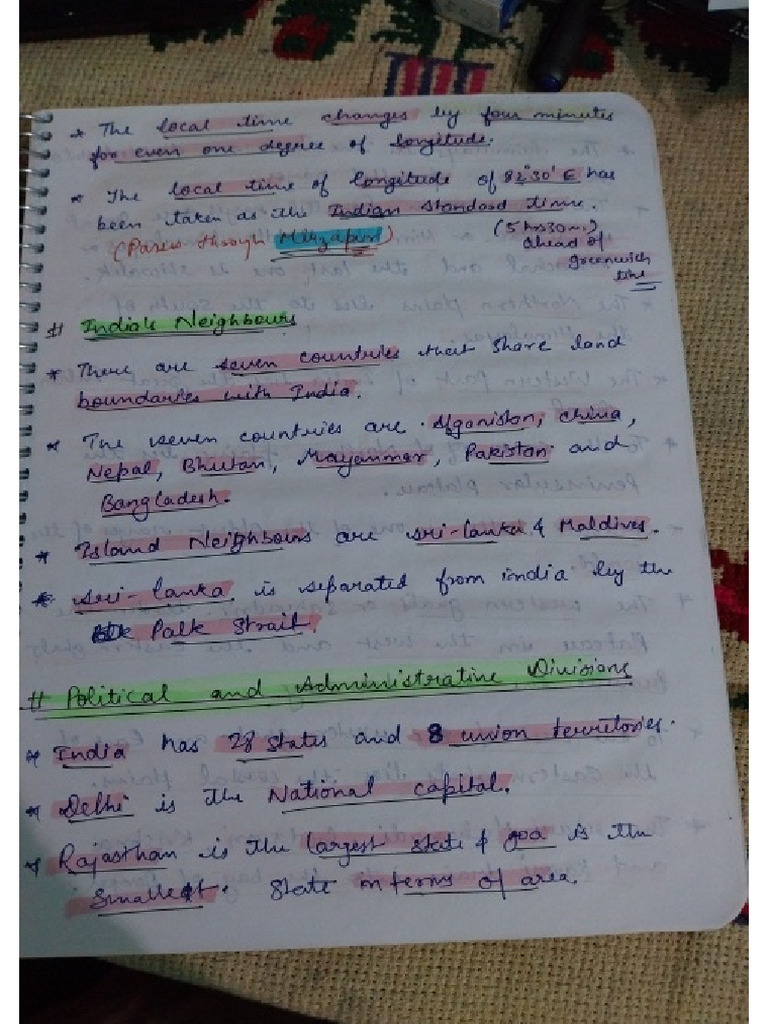 * The local time changes by four minutes
for even one degree of longitude.
* The local time of longitude of 82°30' E has
been taken as the Indian Standard time.
(Passes through Mirzapur) (5 hrs 30m.)
ahead of
greenwich
time
# India's Neighbours
* There are seven countries that share land
boundaries with India.
* The seven countries are Afganistan, china,
Nepal, Bhutan, Mayanmar, Pakistan and
Bangladesh.
* Island Neighbours are sri-lanka & Maldives.
* sri-lanka is separated from india by the
Palk Strait.
# Political and Administrative Divisions
* India has 28 states and 8 union territories.
* Delhi is the National capital.
* Rajasthan is the largest state & goa is the
smallest. State in terms of area